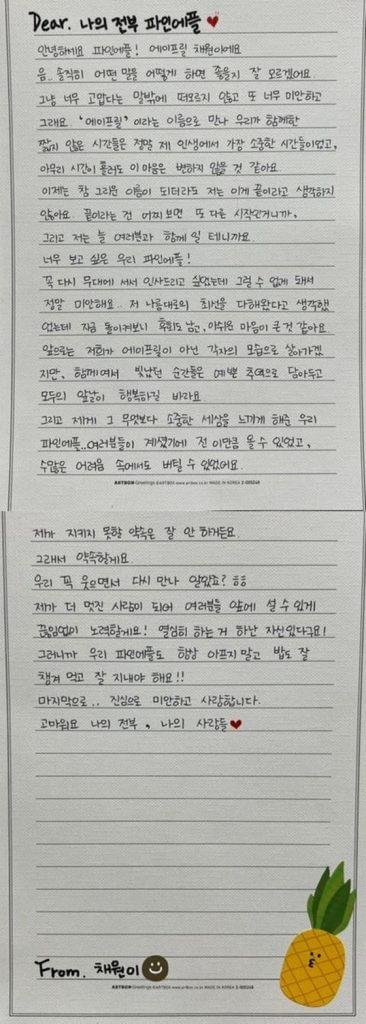 Dear. 나의 전부 파인에플 ♥
안녕하세요 파인에플! 에이프릴 채원이에요
음.. 솔직히 어떤 말을 어떻게 하면 좋을지 잘 모르겠어요.
그냥 너무 고맙다는 말밖에 떠오르지 않고 또 너무 미안하고
그래요. '에이프릴' 이라는 이름으로 만나 우리가 함께한
짧지 않은 시간들은 정말 제 인생에서 가장 소중한 시간들이었고,
아무리 시간이 흘러도 이 마음은 변하지 않을 것 같아요.
이제는 참 그리운 이름이 되더라도 저는 이게 끝이라고 생각하지
않아요. 끝이라는 건 어찌보면 또 다른 시작인거니까,
그리고 저는 늘 여러분과 함께 일 테니까요.
너무 보고 싶은 우리 파인에플!
꼭 다시 무대에 서서 인사드리고 싶었는데 그럴 수 없게 돼서
정말 미안해요.. 저 나름대로의 최선을 다해왔다고 생각했
었는데 지금 돌이켜보니 후회도 남고, 아쉬운 마음이 큰것 같아요
앞으로는 저희가 에이프릴이 아닌 각자의 모습으로 살아가겠
지만, 함께여서 빛났던 순간들은 예쁜 추억으로 담아두고
모두의 앞날이 행복하길 바라요
그리고 제게 그 무엇보다 소중한 세상을 느끼게 해준 우리
파인에플.. 여러분들이 계셨기에 전 이만큼 올 수 있었고,
수많은 어려움 속에서도 버틸 수 있었어요.
ARTBOX Greetings ©ARTBOX www.artbox.co.kr MADE IN KOREA
제가 지키지 못할 약속은 잘 안 하거든요.
그래서 약속할게요.
우리 꼭 웃으면서 다시 만나 알았죠? ㅎㅎ
제가 더 멋진 사람이 되어 여러분들 앞에 설 수 있게
끊임없이 노력할게요! 열심히 하는 거 하난 자신있다구요!
그러니까 우리 파인에플도 항상 아프지말고 밥도 잘
챙겨 먹고 잘 지내야 해요!!
마지막으로.. 진심으로 미안하고 사랑합니다.
고마워요 나의 전부, 나의 사랑들♥
From. 채원이
ARTBOX Greetings ©ARTBOX www.artbox.co.kr MADE IN KOREA